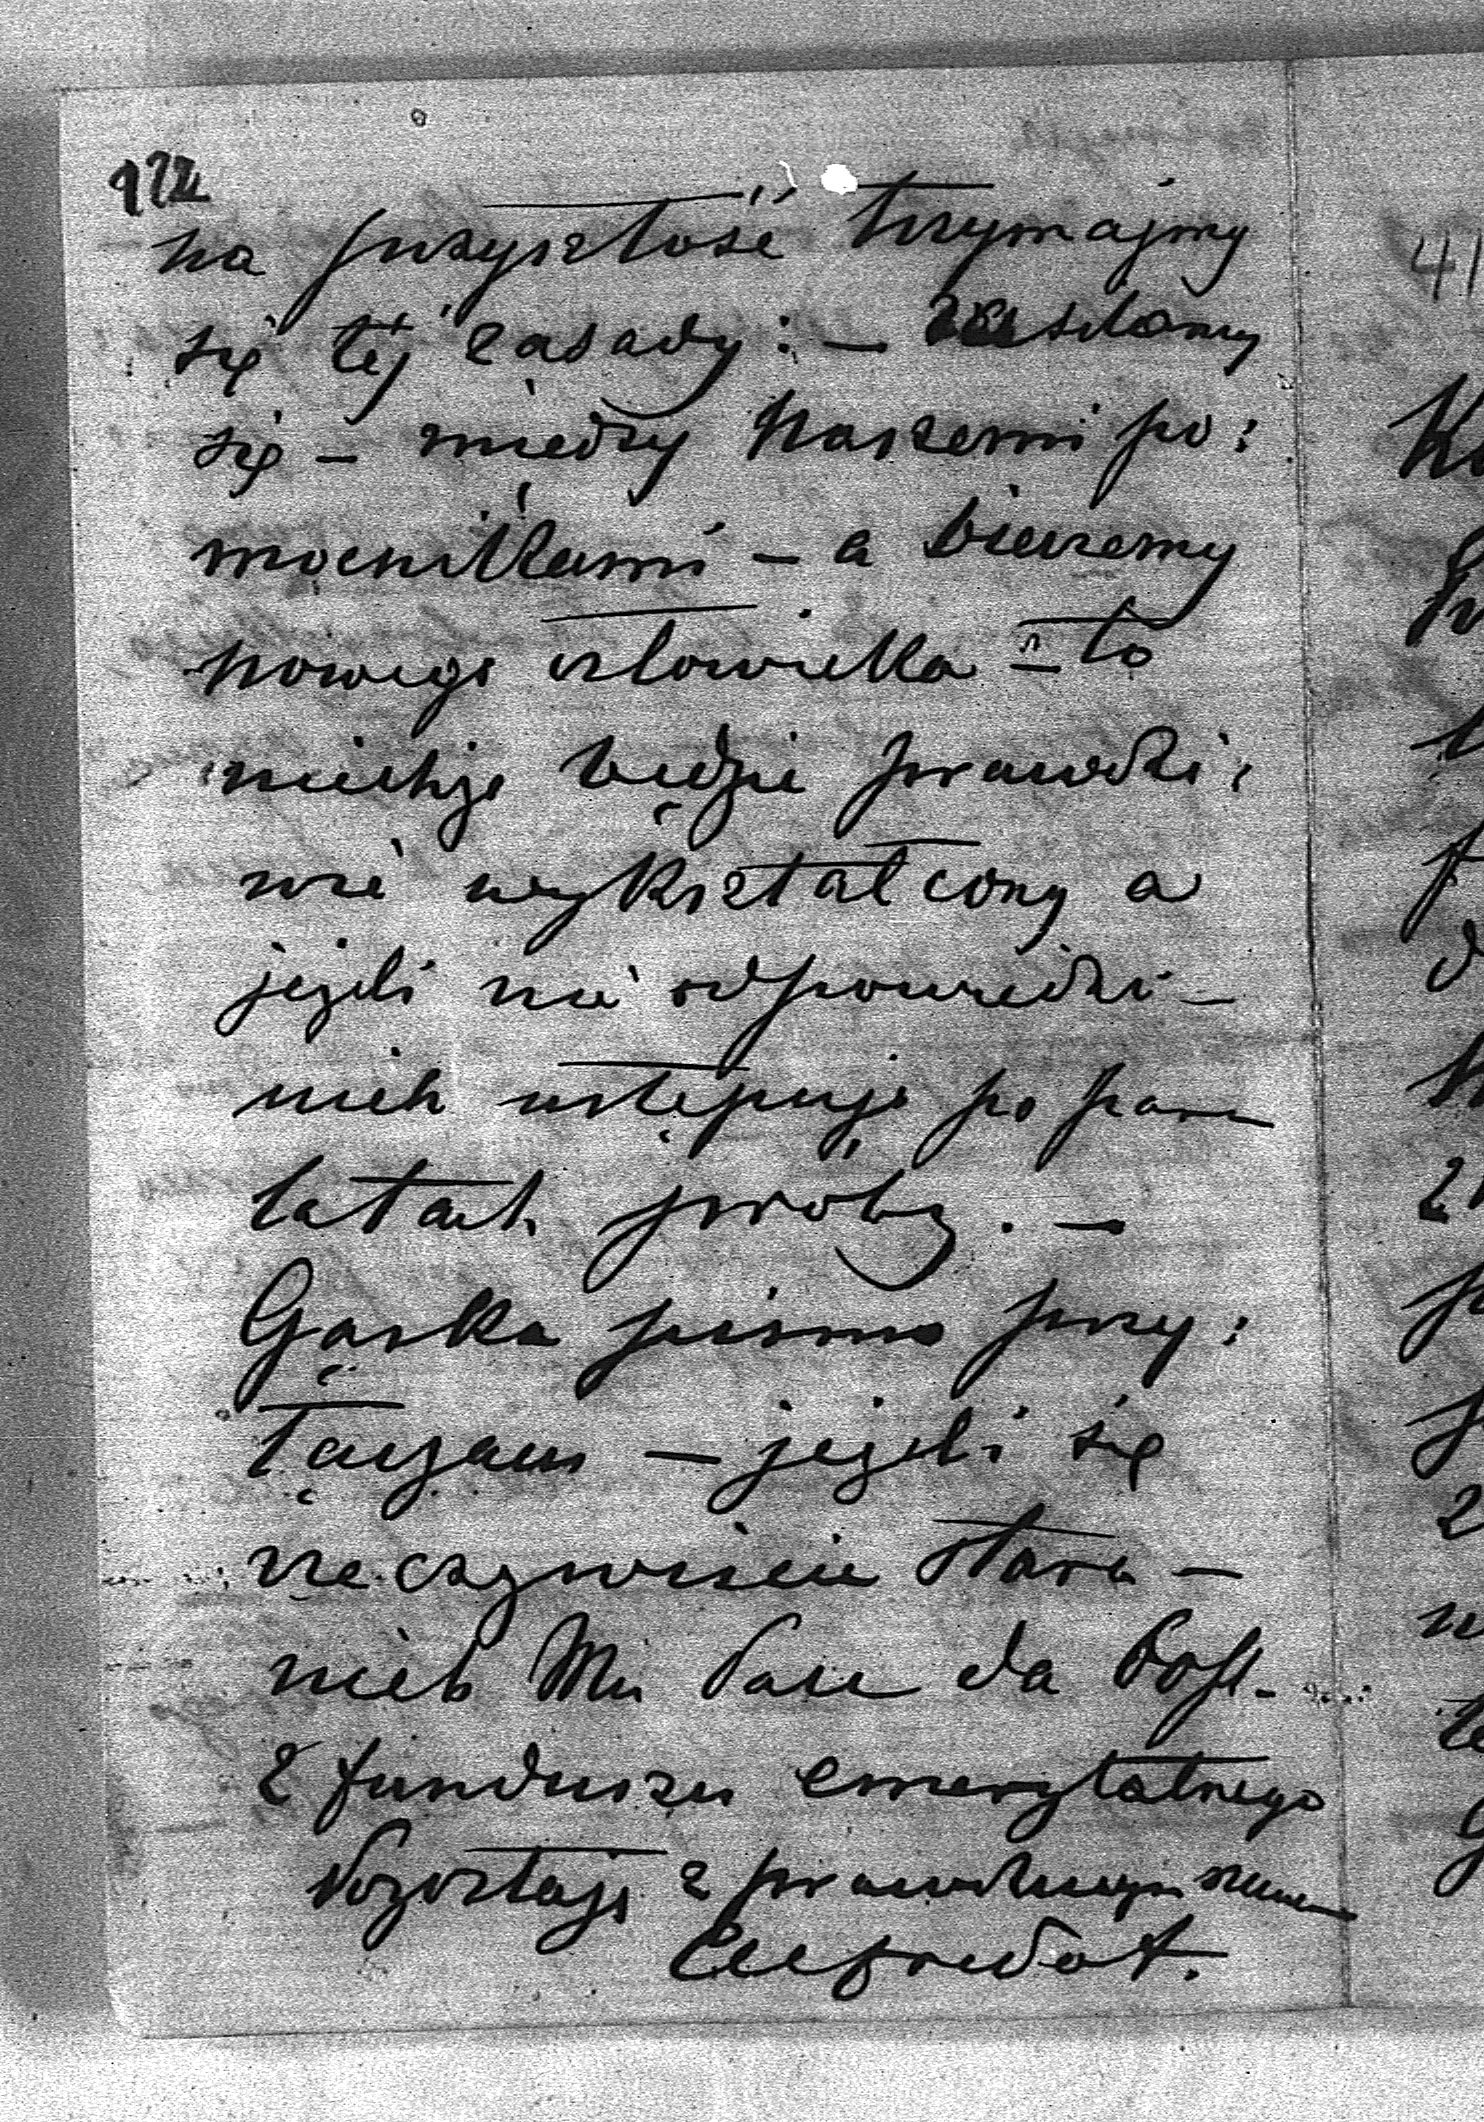 172
na przyszłość trzymajmy
się tej zasady: — silamy
się — między naszemi po:
mocnikami — a bierzemy
nowego człowieka — to
niechże będzie prawdzi:
wie wykształcony a
jeżeli nie odpowiedni —
niech ustępuje po paru
latach próby. —
Gąska pismo przy:
łączam — jeżeli się
rzeczywiście stara —
niech Mu Pan da
z funduszu emerytalnego
Pozostaję z prawdziwym